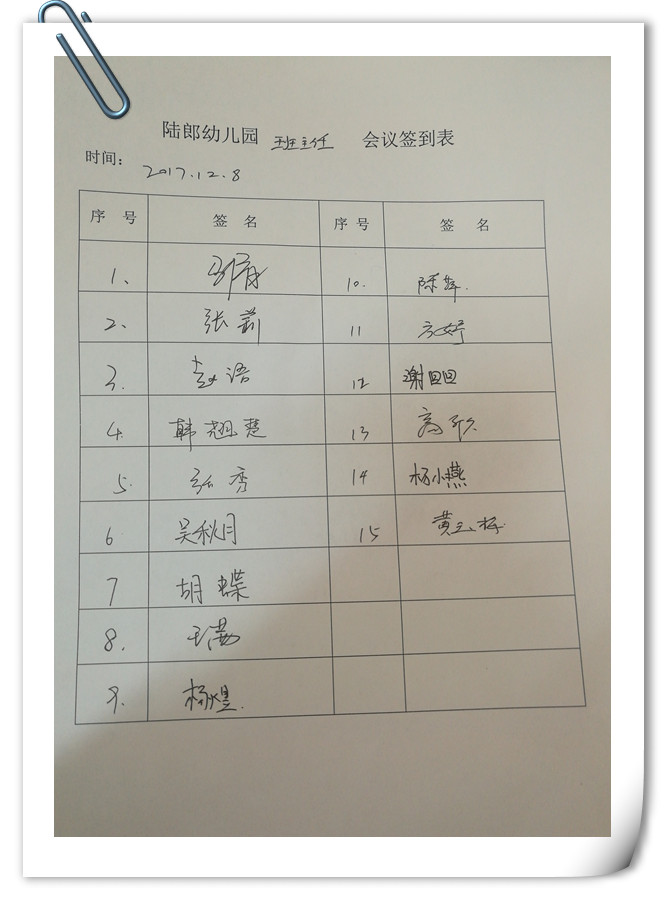 陆郎幼儿园 班主任 会议签到表
时间： 2017.12.8
序 号 签 名 序 号 签 名
1、 10. 陈萍.
2、 张莉 11 方婷
3. 赵语 12 谢田田
4. 韩翘楚 13 高欣
5. 张秀 14 杨小燕
6 吴秋月 15 黄玉梅
7 胡蝶
8. 王满
9. 杨煜.